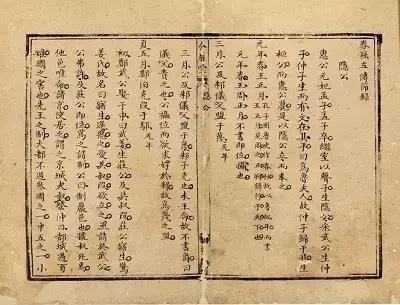 春秋左傳節錄
隱公
惠公元妃孟子孟子卒繼室以聲子生隱公宋武公生仲
子仲子生而有文在其手曰爲魯夫人故仲子歸于我生
桓公而惠公薨是以隱公立而奉之
元年春王正月
元年春王周正月不書即位攝也
三月公及邾儀父盟于蔑元年
三月公及邾儀父盟于蔑邾子克也未王命故不書爵曰
儀父貴之也公攝位而欲求好於邾故爲蔑之盟
夏五月鄭伯克段于鄢元年
初鄭武公娶于申曰武姜生莊公及共叔段莊公寤生驚
姜氏故名曰寤生遂惡之愛共叔段欲立之亟請於武公
公弗許及莊公即位爲之請制公曰制巖邑也虢叔死焉
他邑唯命請京使居之謂之京城大叔祭仲曰都城過百
雉國之害也先王之制大都不過參國之一中五之一小